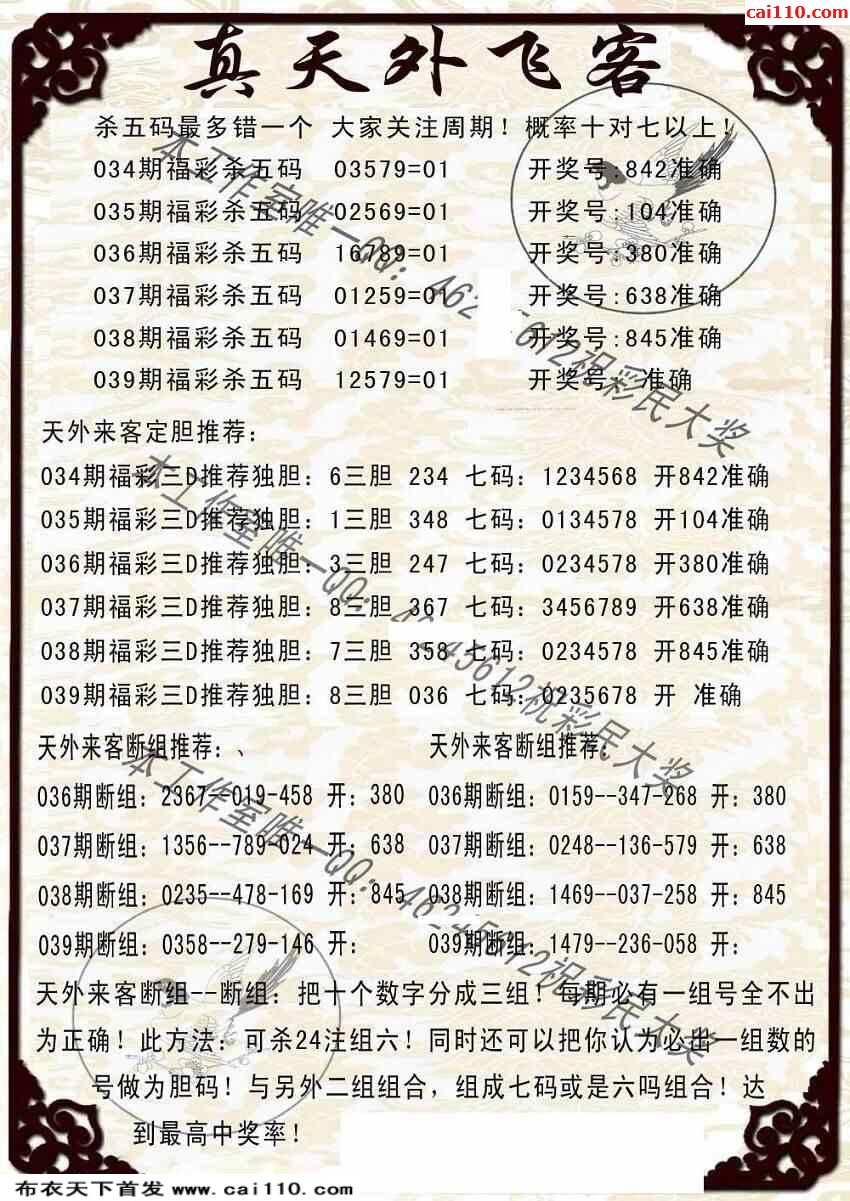 cai110.com
真天外飞客
杀五码最多错一个 大家关注周期！概率十对七以上！
034期福彩杀五码 03579=01 开奖号:842准确
035期福彩杀五码 02569=01 开奖号:104准确
036期福彩杀五码 16789=01 开奖号:380准确
037期福彩杀五码 01259=01 开奖号:638准确
038期福彩杀五码 01469=01 开奖号:845准确
039期福彩杀五码 12579=01 开奖号: 准确
天外来客定胆推荐：
034期福彩三D推荐独胆：6三胆 234 七码：1234568 开842准确
035期福彩三D推荐独胆：1三胆 348 七码：0134578 开104准确
036期福彩三D推荐独胆：3三胆 247 七码：0234578 开380准确
037期福彩三D推荐独胆：8三胆 367 七码：3456789 开638准确
038期福彩三D推荐独胆：7三胆 358 七码：0234578 开845准确
039期福彩三D推荐独胆：8三胆 036 七码：0235678 开 准确
天外来客断组推荐：、 天外来客断组推荐：
036期断组：2367--019-458 开：380 036期断组：0159--347-268 开：380
037期断组：1356--789-024 开：638 037期断组：0248--136-579 开：638
038期断组：0235--478-169 开：845 038期断组：1469--037-258 开：845
039期断组：0358--279-146 开： 039期断组：1479--236-058 开：
天外来客断组--断组：把十个数字分成三组！每期必有一组号全不出
为正确！此方法：可杀24注组六！同时还可以把你认为必出一组数的
号做为胆码！与另外二组组合，组成七码或是六吗组合！达
到最高中奖率！
本工作室唯一QQ：462 612祝彩民大奖
本工作室唯一QQ：45612祝彩民大奖
本工作室唯一QQ：46245612祝彩民大奖
布衣天下首发 www.cai110.com